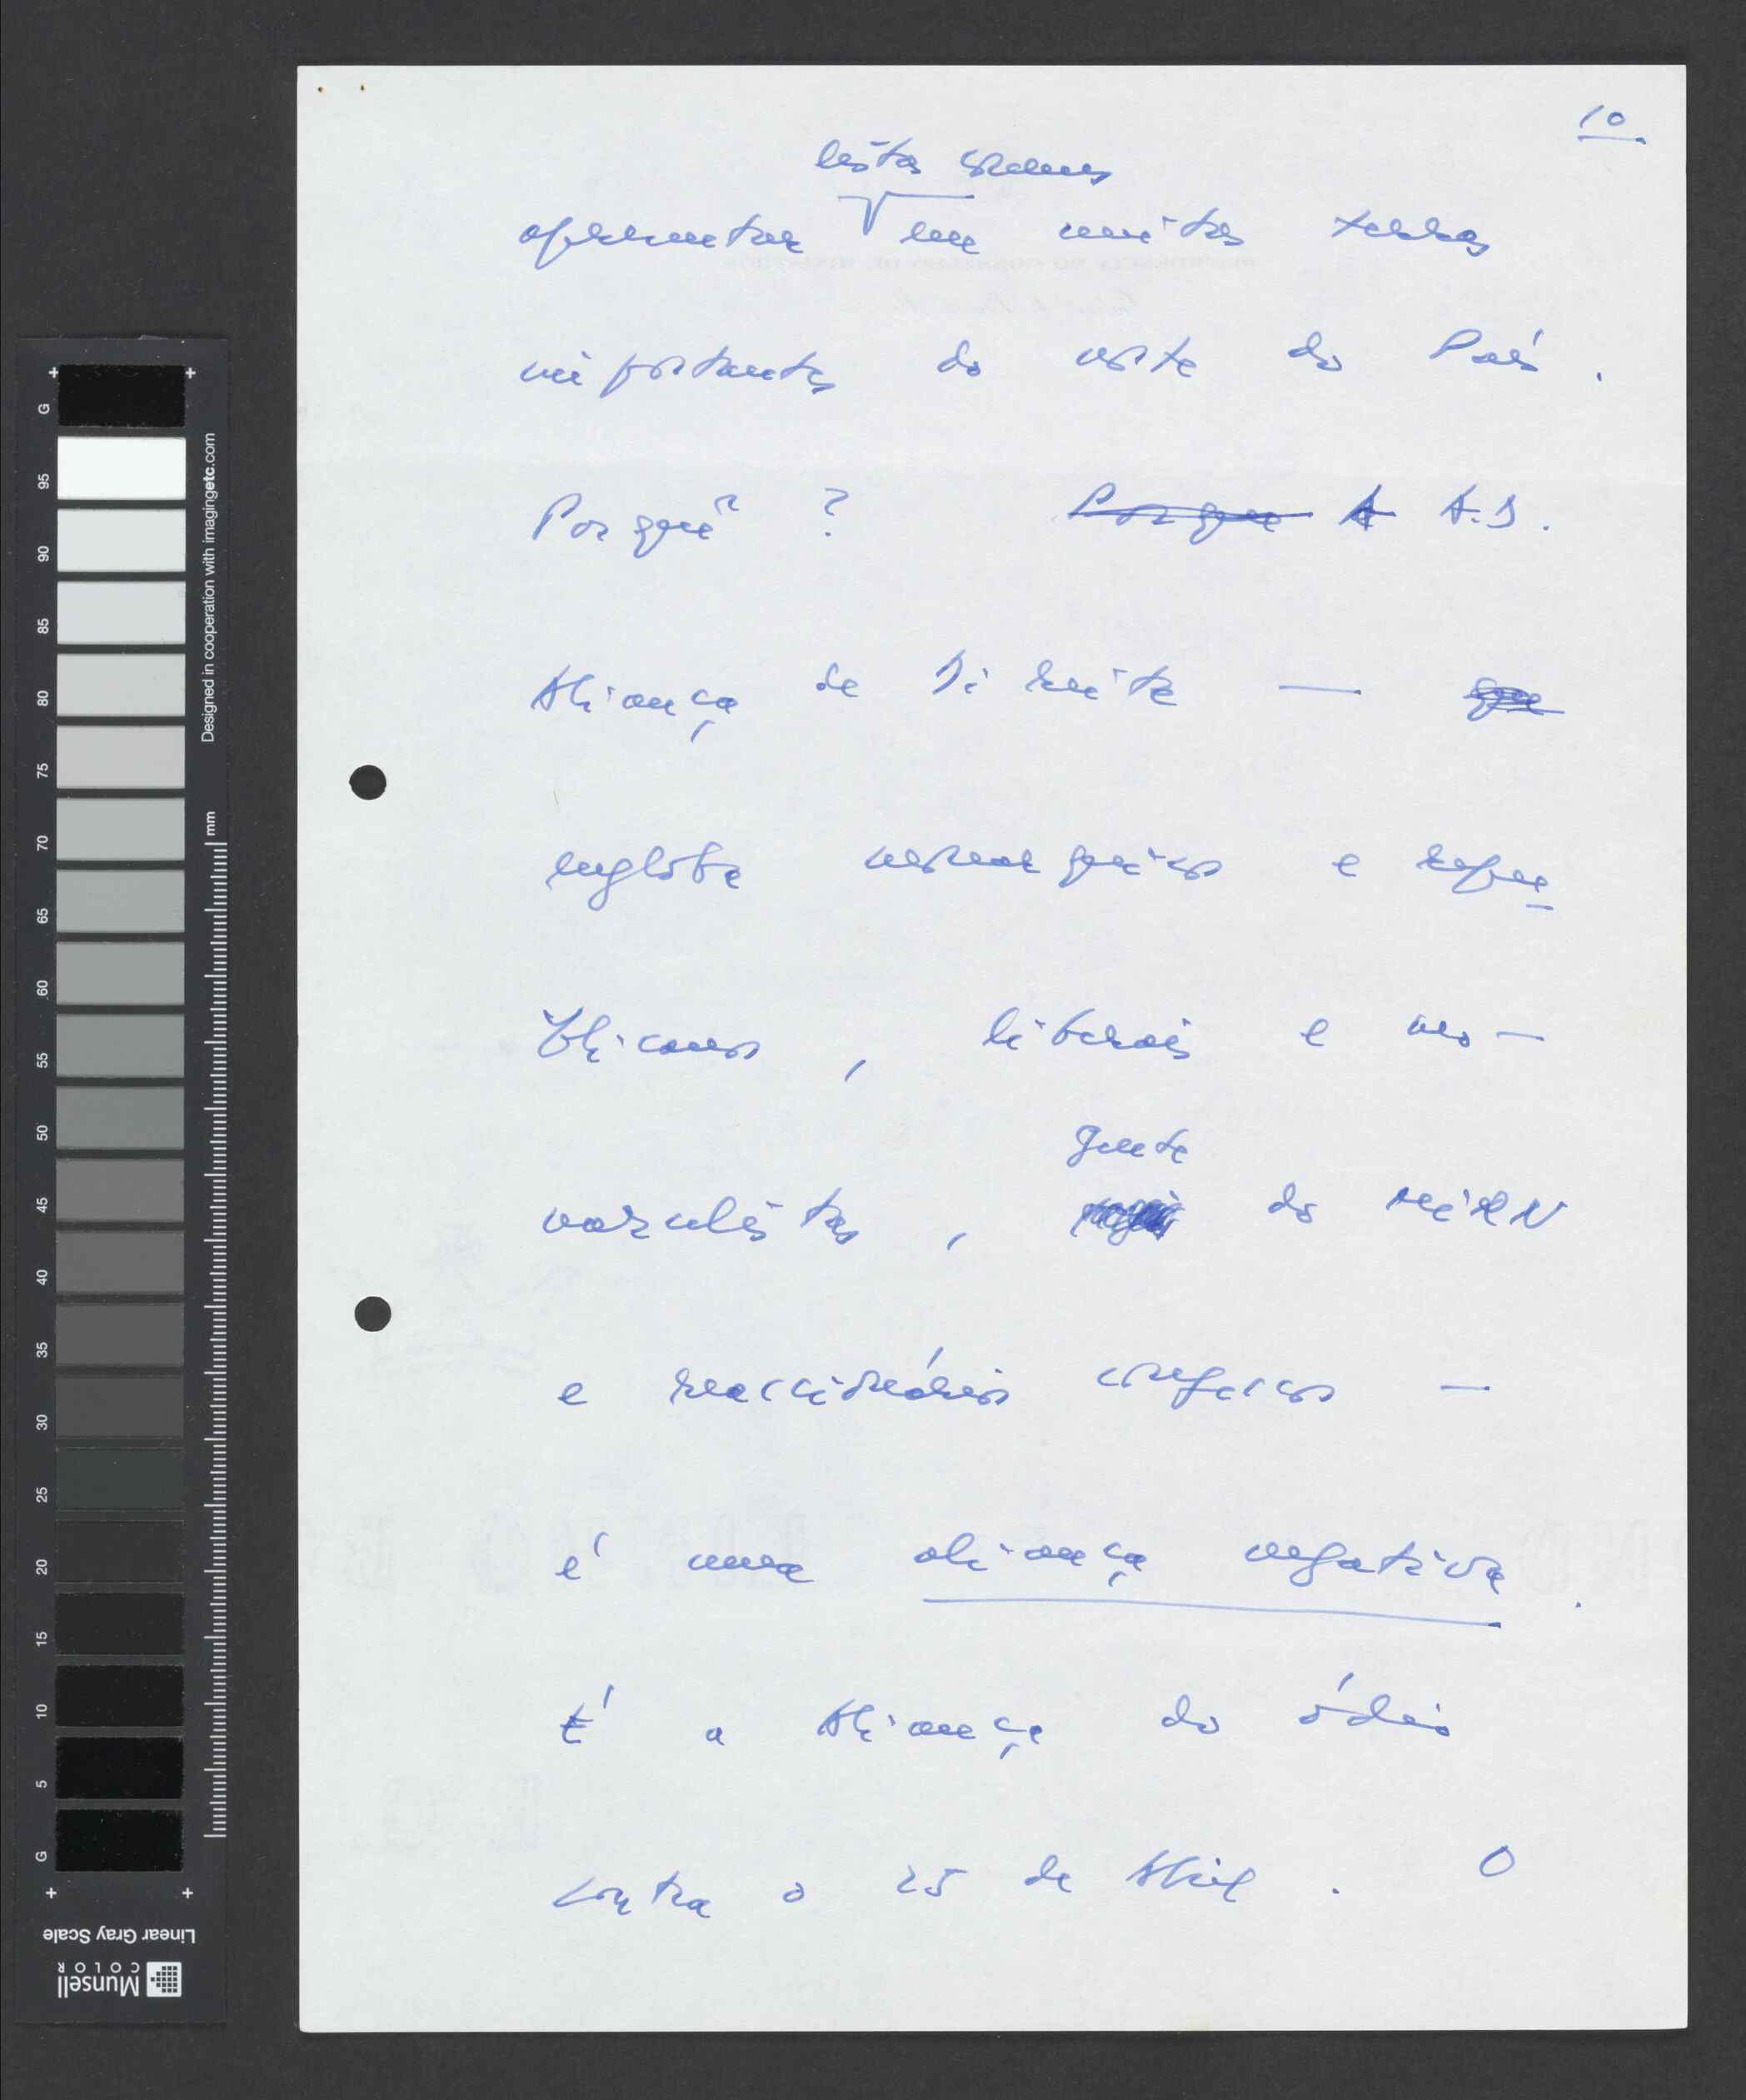 10
listas comuns
apresentar em muitas terras
importantes do norte do País.
Porquê? Porque A A.D.
Aliança de Direita — que
engloba monárquicos e repu
blicanos, liberais e mo-
gente
vozulistas, do MIRN
e reaccionários confessos —
é uma aliança negativa.
É a Aliança do ódio
contra o 25 de Abril. O
G
95
90
85
80
75
70
65
60
55
50
45
40
35
30
25
20
15
10
5
G
mm
Designed in cooperation with imagingetc.com
Linear Gray Scale
Munsell
COLOR